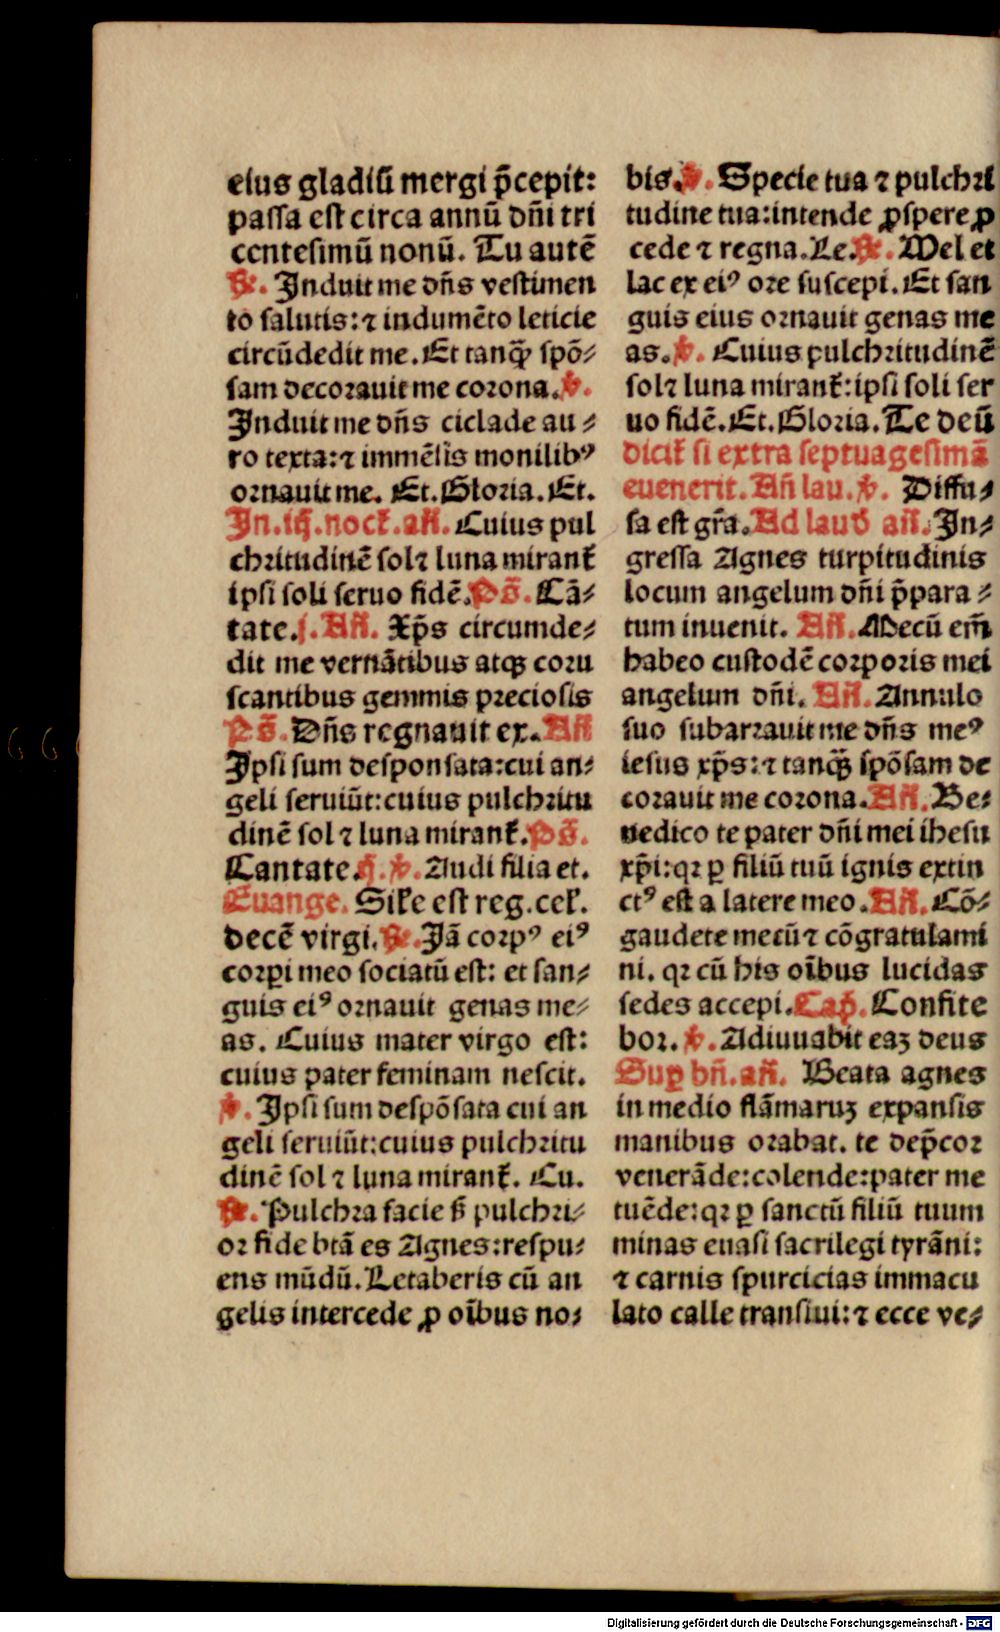 eius gladiū mergi p̄cepit:
passa est circa annū dn̄i tri
centesimū nonū. Tu autē
℟. Induit me dn̄s vestimen
to salutis: ⁊ indumēto leticie
circūdedit me. Et tanqȝ spō⸗
sam decorauit me corona. ℣.
Induit me dn̄s ciclade au⸗
ro texta: ⁊ immēsis monilibꝰ
ornauit me. Et. Gloria. Et.
In. iij. noct̄. an̄. Cuius pul
chritudinē sol ⁊ luna mirant̄
ipsi soli seruo fidē. Ps̄. Cā⸗
tate. j. An̄. Xp̄s circumde⸗
dit me vernātibus atqȝ coru
scantibus gemmis preciosis
Ps̄. Dn̄s regnauit ex. An̄
Ipsi sum desponsata: cui an⸗
geli seruiūt: cuius pulchritu
dinē sol ⁊ luna mirant̄. Ps̄.
Cantate. ij. ℣. Audi filia et.
Euange. Sil̄e est reg. cel̄.
decē virgi. ℟. Iā corpꝰ eiꝰ
corpi meo sociatū est: et san⸗
guis eiꝰ ornauit genas me⸗
as. Cuius mater virgo est:
cuius pater feminam nescit.
℣. Ipsi sum despōsata cui an
geli seruiūt: cuius pulchritu
dinē sol ⁊ luna mirant̄. Cu.
℟. Pulchra facie s̄ pulchri⸗
or fide btā es Agnes: respu⸗
ens mūdū. Letaberis cū an
gelis intercede ꝓ oībus no⸗
bis. ℣. Specie tua ⁊ pulchri
tudine tua: intende ꝓspere ꝓ
cede ⁊ regna. Le. ℟. Mel et
lac ex eiꝰ ore suscepi. Et san
guis eius ornauit genas me
as. ℣. Cuius pulchritudinē
sol ⁊ luna mirant̄: ipsi soli ser
uo fidē. Et. Gloria. Te deū
dicit̄ si extra septuagesimā
euenerit. An̄ lau. ℣. Diffu⸗
sa est gr̄a. Ad laud̄ an̄. In⸗
gressa Agnes turpitudinis
locum angelum dn̄i p̄para⸗
tum inuenit. An̄. Mecū em̄
habeo custodē corporis mei
angelum dn̄i. An̄. Annulo
suo subarrauit me dn̄s meꝰ
iesus xp̄s: ⁊ tanqȝ spōsam de
corauit me corona. An̄. Be⸗
nedico te pater dn̄i mei ihesu
xp̄i: qꝛ ꝑ filiū tuū ignis extin
ctꝰ est a latere meo. An̄. Cō⸗
gaudete mecū ⁊ cōgratulami
ni. qꝛ cū his oībus lucidas
sedes accepi. Cap̄. Confite
bor. ℣. Adiuuabit eaȝ deus
Suꝑ bn̄. an̄. Beata agnes
in medio flāmaruȝ expansis
manibus orabat. te dep̄cor
venerāde: colende: pater me
tuēde: qꝛ ꝑ sanctū filiū tuum
minas euasi sacrilegi tyrāni:
⁊ carnis spurcicias immacu
lato calle transiui: ⁊ ecce ve⸗
Digitalisierung gefördert durch die Deutsche Forschungsgemeinschaft - DFG